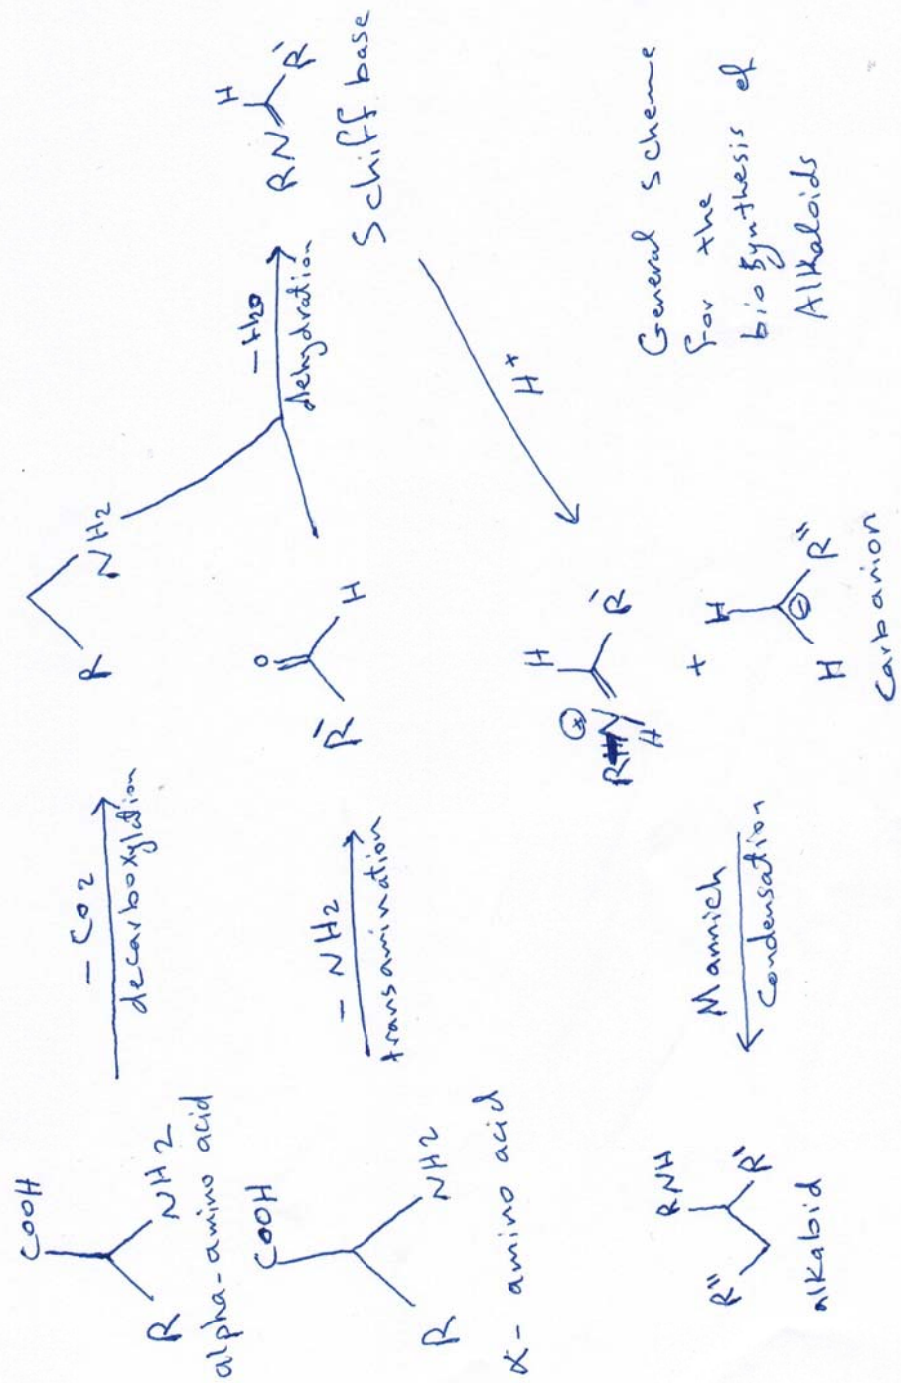 COOH
R
NH2
alpha-amino acid
- CO2
decarboxylation
R
NH2
COOH
R
NH2
α- amino acid
- NH2
transamination
O
R'
H
- H2O
dehydration
H
RN
R'
Schiff base
H+
H
+
RN
H
R'
+
H
H
-
R"
Carbanion
Mannich
Condensation
RNH
R"
R'
alkaloid
General scheme
for the
biosynthesis of
Alkaloids